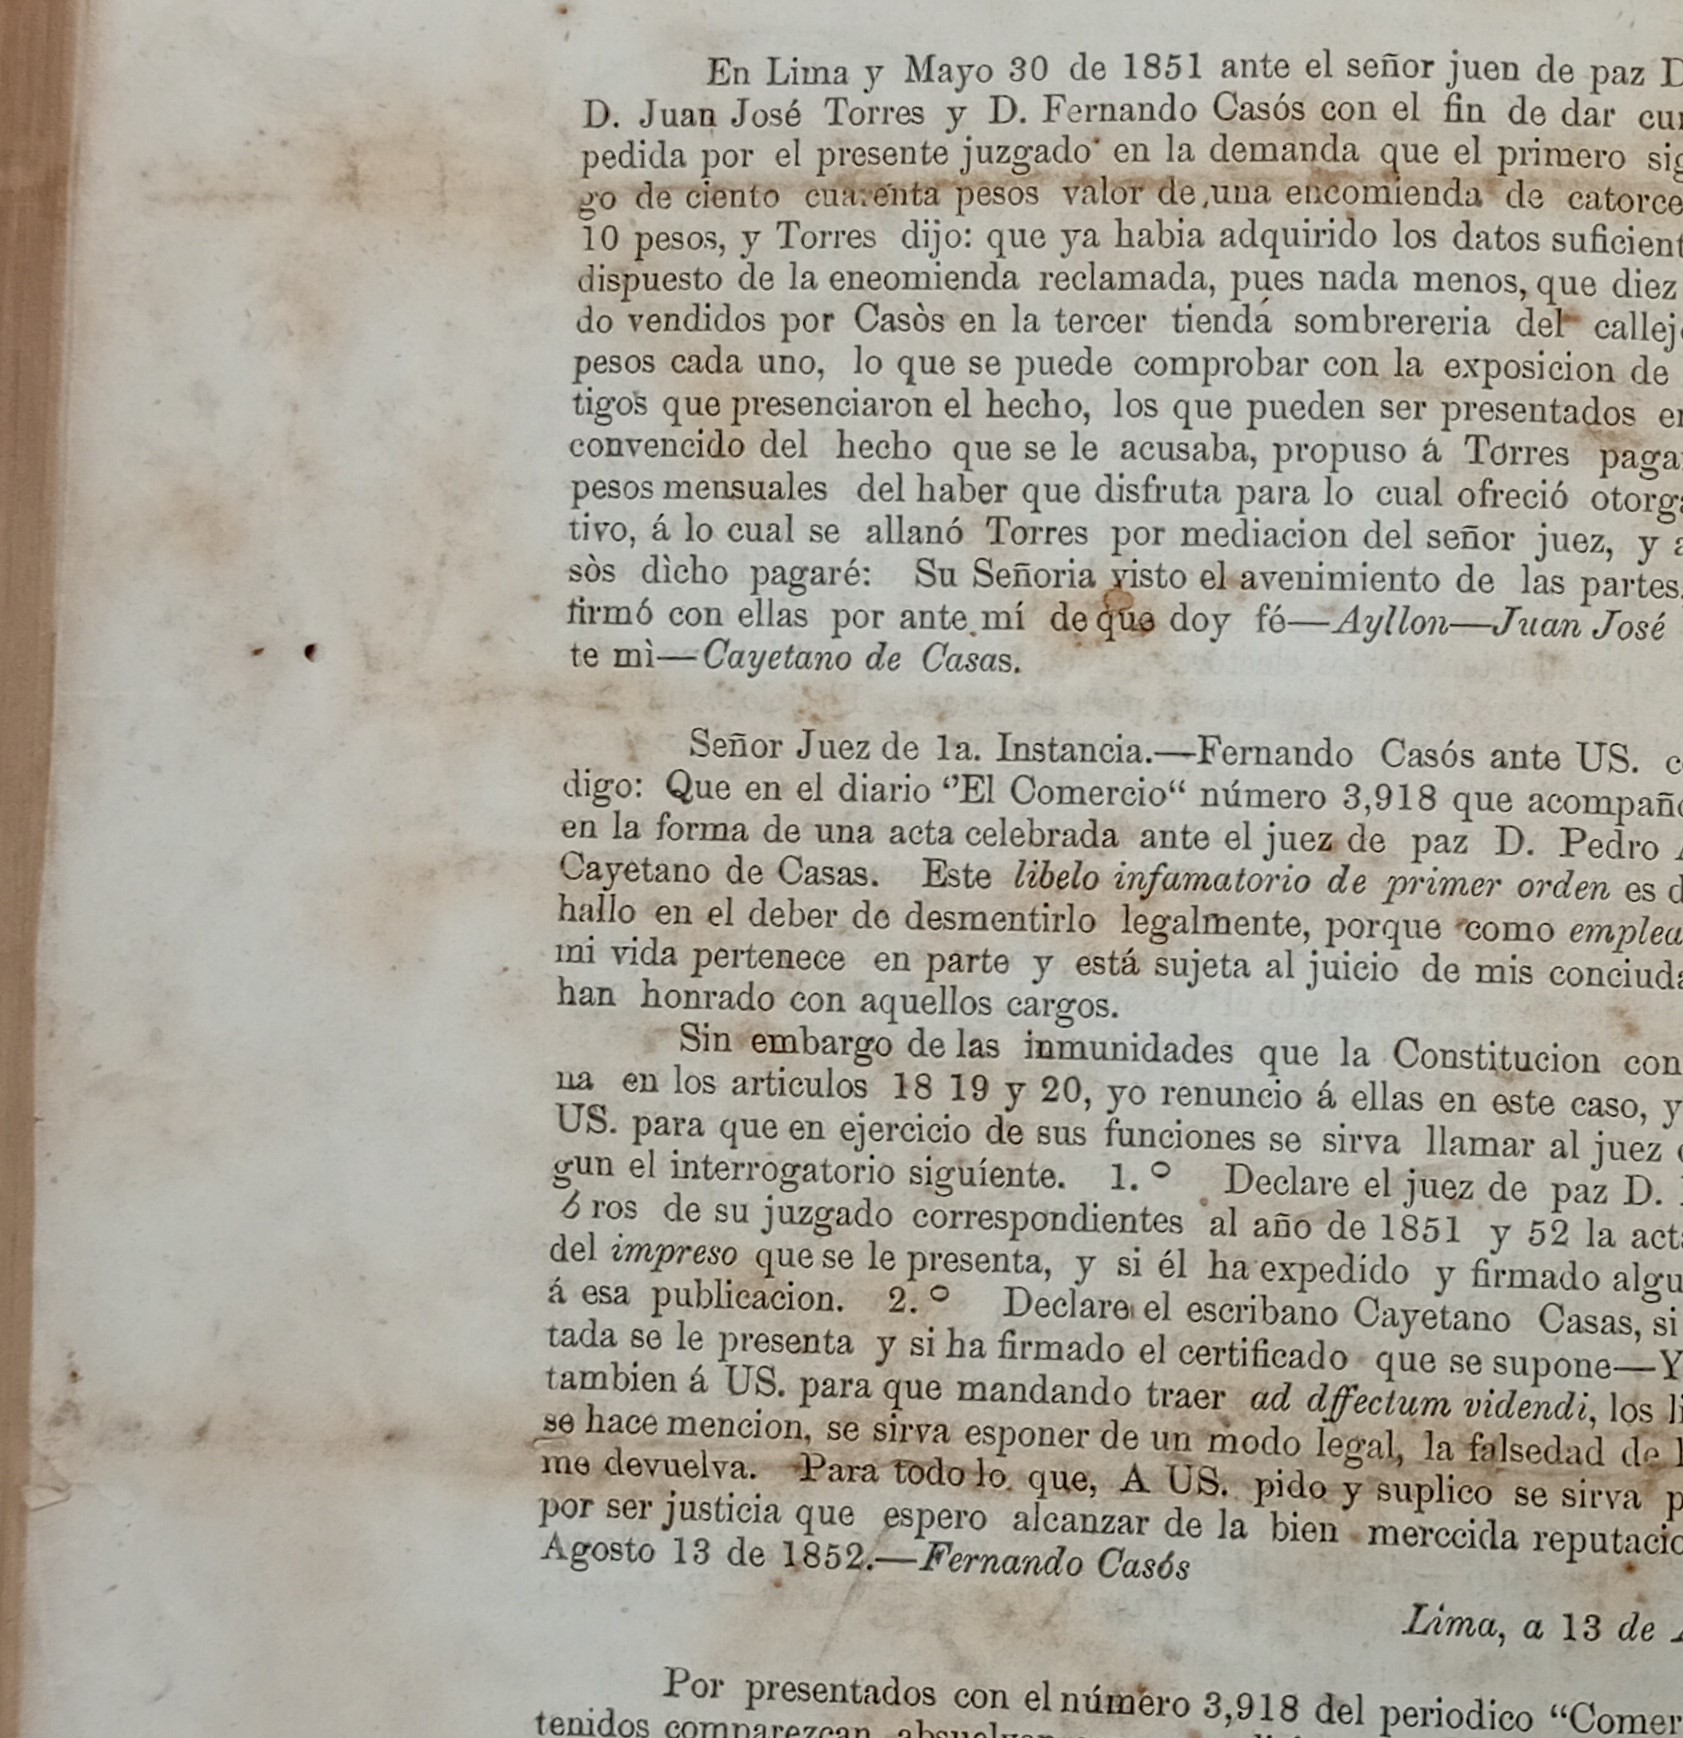 En Lima y Mayo 30 de 1851 ante el señor juen de paz D
D. Juan José Torres y D. Fernando Casós con el fin de dar cu
pedida por el presente juzgado en la demanda que el primero sig
go de ciento cuarenta pesos valor de una encomienda de catorce
10 pesos, y Torres dijo: que ya habia adquirido los datos suficient
dispuesto de la eneomienda reclamada, pues nada menos, que diez
do vendidos por Casòs en la tercer tienda sombrereria del callej
pesos cada uno, lo que se puede comprobar con la exposicion de
tigos que presenciaron el hecho, los que pueden ser presentados e
convencido del hecho que se le acusaba, propuso á Torres paga
pesos mensuales del haber que disfruta para lo cual ofreció otorg
tivo, á lo cual se allanó Torres por mediacion del señor juez, y a
sòs dìcho pagaré: Su Señoria visto el avenimiento de las partes
firmó con ellas por ante mí de que doy fé—Ayllon—Juan José
te mì—Cayetano de Casas.
Señor Juez de 1a. Instancia.—Fernando Casós ante US. c
digo: Que en el diario “El Comercio“ número 3,918 que acompaño
en la forma de una acta celebrada ante el juez de paz D. Pedro
Cayetano de Casas. Este libelo infamatorio de primer orden es d
hallo en el deber de desmentirlo legalmente, porque como emplea
mi vida pertenece en parte y está sujeta al juicio de mis conciuda
han honrado con aquellos cargos.
Sin embargo de las inmunidades que la Constitucion con
na en los articulos 18 19 y 20, yo renuncio á ellas en este caso, y
US. para que en ejercicio de sus funciones se sirva llamar al juez
gun el interrogatorio siguíente. 1.º Declare el juez de paz D.
ros de su juzgado correspondientes al año de 1851 y 52 la act
del impreso que se le presenta, y si él ha expedido y firmado algu
á esa publicacion. 2.º Declare el escribano Cayetano Casas, si
tada se le presenta y si ha firmado el certificado que se supone—Y
tambien á US. para que mandando traer ad dffectum videndi, los li
se hace mencion, se sirva esponer de un modo legal, la falsedad de l
me devuelva. Para todo lo que, A US. pido y suplico se sirva p
por ser justicia que espero alcanzar de la bien merccida reputacio
Agosto 13 de 1852.—Fernando Casós
Lima, a 13 de
Por presentados con el número 3,918 del periodico “Comer
tenidos comparezcan